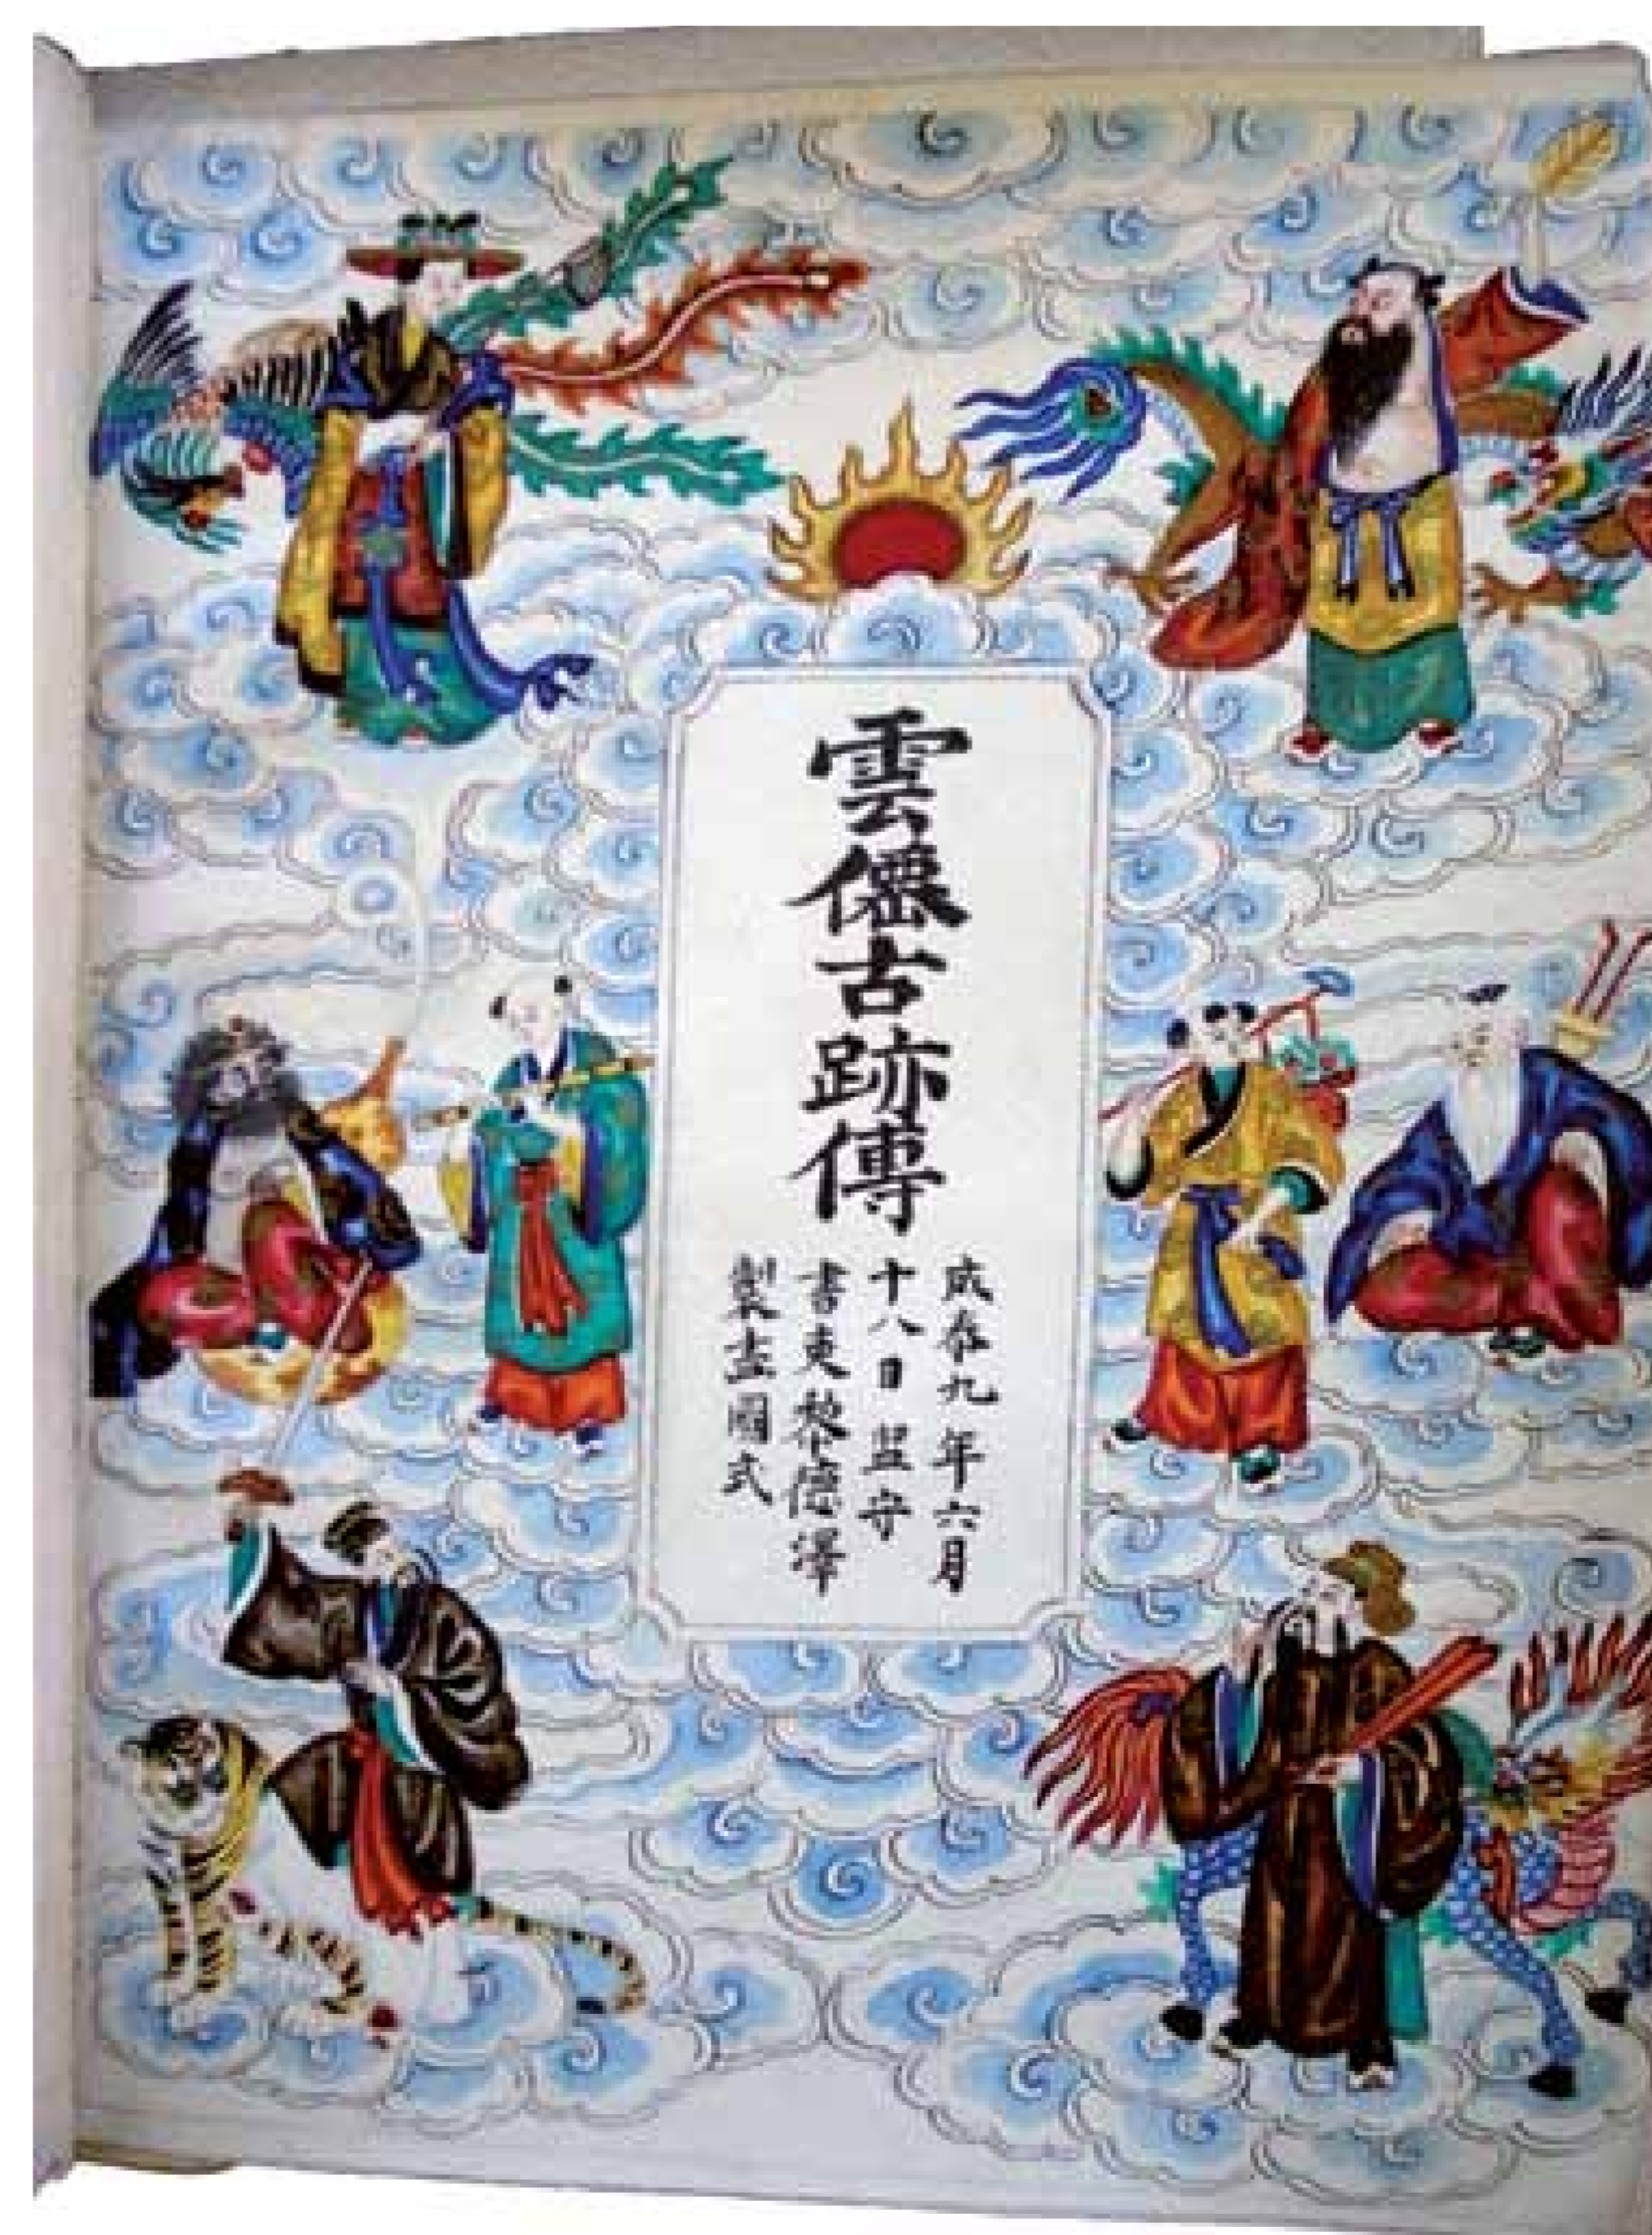 雲僊古跡傳
成泰九年六月
十八日監守
書吏黎德澤
製畫圖式